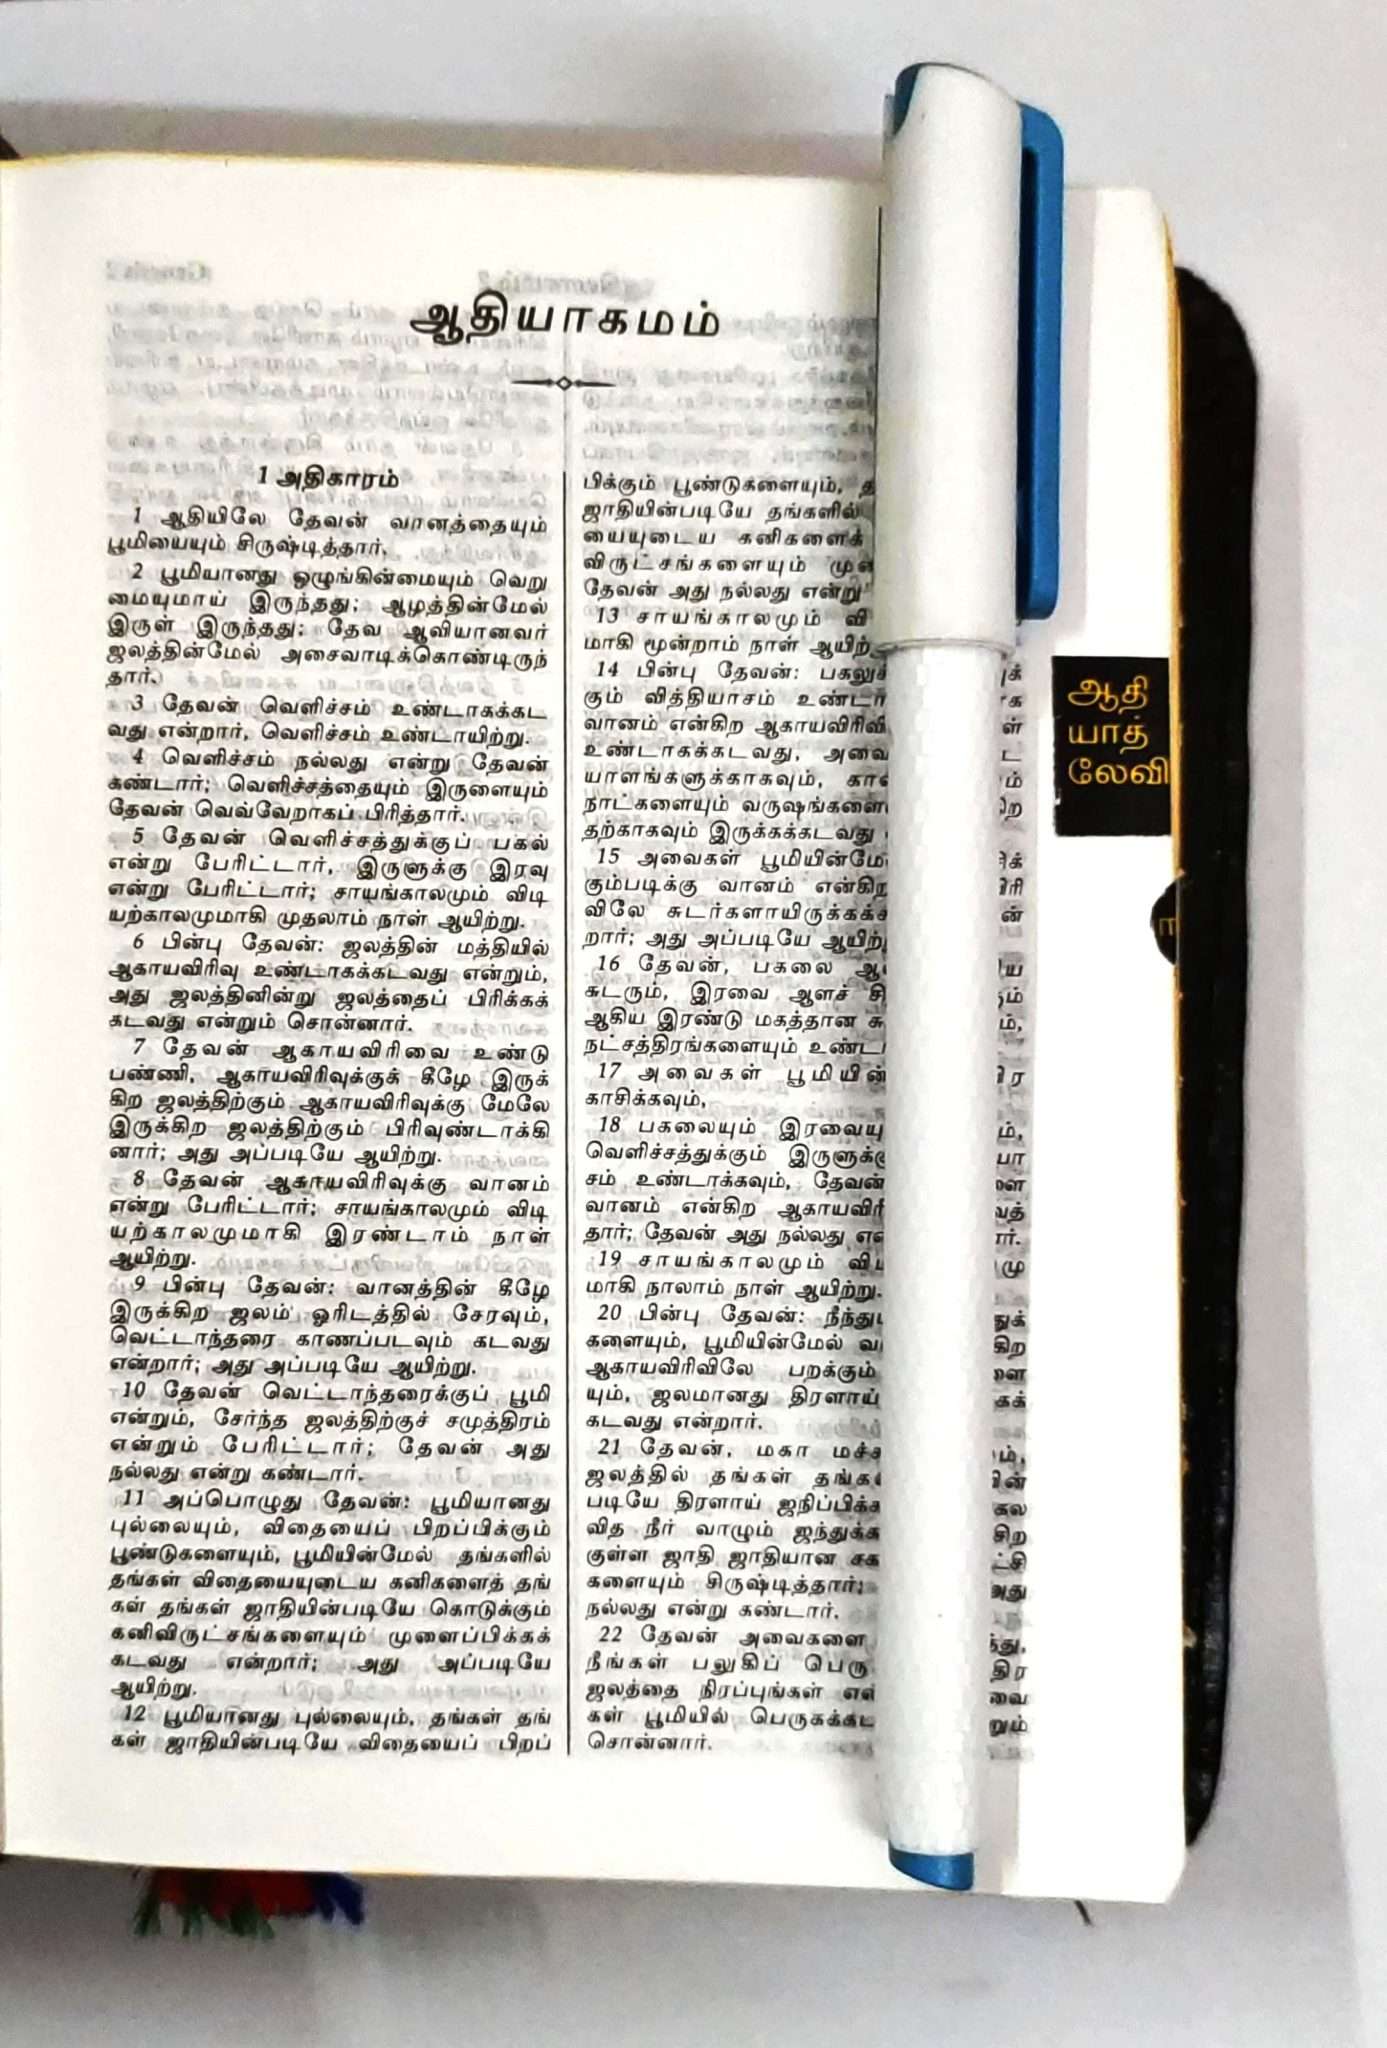 ஆதியாகமம்
1 அதிகாரம்
1 ஆதியிலே தேவன் வானத்தையும்
பூமியையும் சிருஷ்டித்தார்.
2 பூமியானது ஒழுங்கின்மையும் வெறு
மையுமாய் இருந்தது; ஆழத்தின்மேல்
இருள் இருந்தது; தேவ ஆவியானவர்
ஜலத்தின்மேல் அசைவாடிக்கொண்டிருந்
தார்.
3 தேவன் வெளிச்சம் உண்டாகக்கட
வது என்றார், வெளிச்சம் உண்டாயிற்று.
4 வெளிச்சம் நல்லது என்று தேவன்
கண்டார்; வெளிச்சத்தையும் இருளையும்
தேவன் வெவ்வேறாகப் பிரித்தார்.
5 தேவன் வெளிச்சத்துக்குப் பகல்
என்று பேரிட்டார், இருளுக்கு இரவு
என்று பேரிட்டார்; சாயங்காலமும் விடி
யற்காலமுமாகி முதலாம் நாள் ஆயிற்று.
6 பின்பு தேவன்: ஜலத்தின் மத்தியில்
ஆகாயவிரிவு உண்டாகக்கடவது என்றும்,
அது ஜலத்தினின்று ஜலத்தைப் பிரிக்கக்
கடவது என்றும் சொன்னார்.
7 தேவன் ஆகாயவிரிவை உண்டு
பண்ணி, ஆகாயவிரிவுக்குக் கீழே இருக்
கிற ஜலத்திற்கும் ஆகாயவிரிவுக்கு மேலே
இருக்கிற ஜலத்திற்கும் பிரிவுண்டாக்கி
னார்; அது அப்படியே ஆயிற்று.
8 தேவன் ஆகாயவிரிவுக்கு வானம்
என்று பேரிட்டார்; சாயங்காலமும் விடி
யற்காலமுமாகி இரண்டாம் நாள்
ஆயிற்று.
9 பின்பு தேவன்: வானத்தின் கீழே
இருக்கிற ஜலம் ஓரிடத்தில் சேரவும்,
வெட்டாந்தரை காணப்படவும் கடவது
என்றார்; அது அப்படியே ஆயிற்று.
10 தேவன் வெட்டாந்தரைக்குப் பூமி
என்றும், சேர்ந்த ஜலத்திற்குச் சமுத்திரம்
என்றும் பேரிட்டார்; தேவன் அது
நல்லது என்று கண்டார்.
11 அப்பொழுது தேவன்: பூமியானது
புல்லையும், விதையைப் பிறப்பிக்கும்
பூண்டுகளையும், பூமியின்மேல் தங்களில்
தங்கள் விதையையுடைய கனிகளைத் தங்
கள் தங்கள் ஜாதியின்படியே கொடுக்கும்
கனிவிருட்சங்களையும் முளைப்பிக்கக்
கடவது என்றார்; அது அப்படியே
ஆயிற்று.
12 பூமியானது புல்லையும், தங்கள் தங்
கள் ஜாதியின்படியே விதையைப் பிறப்
பிக்கும் பூண்டுகளையும்,
ஜாதியின்படியே தங்களில்
யையுடைய கனிகளைக்
விருட்சங்களையும்
தேவன் அது நல்லது என்று
13 சாயங்காலமும்
மாகி மூன்றாம் நாள்
14 பின்பு தேவன்:
கும் வித்தியாசம்
வானம் என்கிற
உண்டாகக்கடவது, 
யாளங்களுக்காகவும்,
நாட்களையும்
தற்காகவும் இருக்கக்கடவது
15 அவைகள்
கும்படிக்கு வானம்
விலே
றார்; அது அப்படியே
16 தேவன், பகலை
சுடரும், இரவை ஆளச்
ஆகிய இரண்டு மகத்தான
நட்சத்திரங்களையும்
17 அவைகள் பூமியின்
காசிக்கவும்,
18 பகலையும்
வெளிச்சத்துக்கும்
சம் உண்டாக்கவும், தேவன்
வானம் என்கிற
தார்; தேவன் அது நல்லது
19 சாயங்காலமும்
மாகி நாலாம் நாள் ஆயிற்று.
20 பின்பு தேவன்:
களையும், பூமியின்மேல்
ஆகாயவிரிவிலே பறக்கும்
யும், ஜலமானது திரளாய்
கடவது என்றார்.
21 தேவன், மகா
ஜலத்தில் தங்கள்
படியே திரளாய்
வித நீர் வாழும்
குள்ள ஜாதி ஜாதியான
களையும் சிருஷ்டித்தார்;
நல்லது என்று கண்டார்.
22 தேவன் அவைகளை
நீங்கள் பலுகிப்
ஜலத்தை நிரப்புங்கள்
கள் பூமியில்
சொன்னார்.
ஆதி
யாத்
லேவி